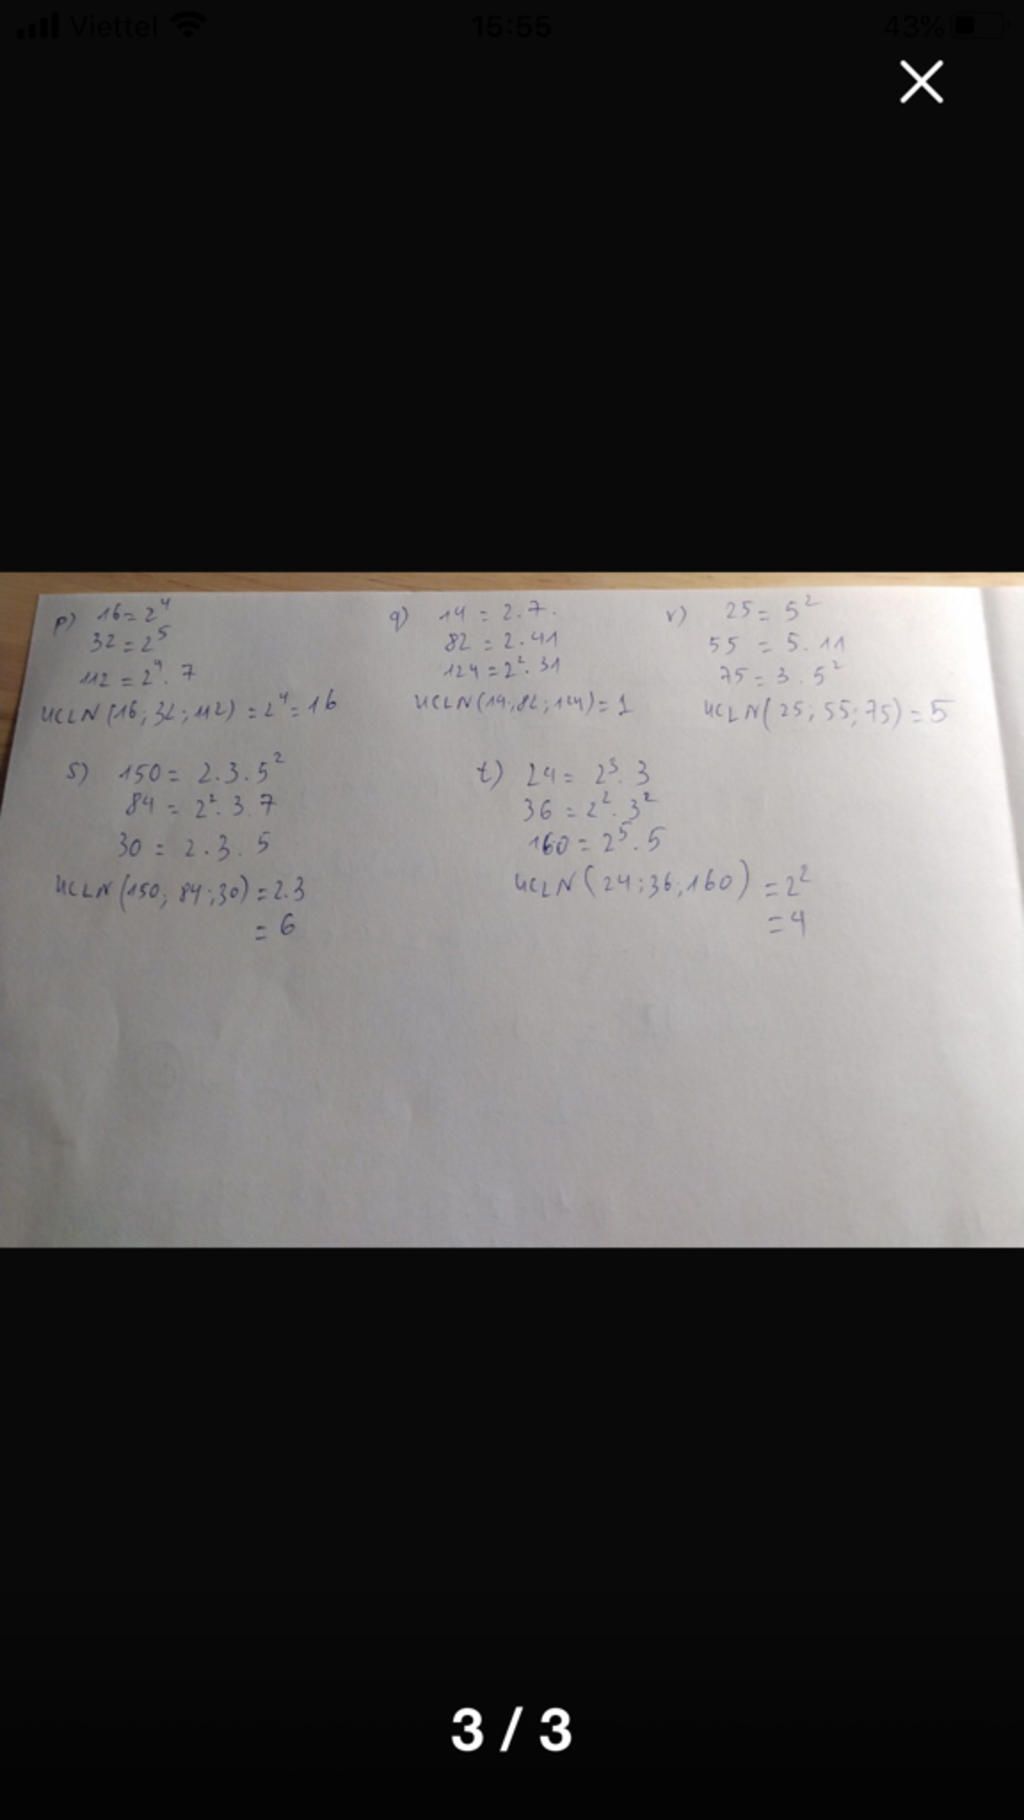 Viettel 15:55 43%
p) 16 = 2⁴
32 = 2⁵
112 = 2⁴. 7
ƯCLN (16; 32; 112) = 2⁴ = 16
q) 14 = 2.7.
82 = 2.41
124 = 2². 31
ƯCLN (14; 82; 124) = 1
r) 25 = 5²
55 = 5. 11
75 = 3. 5²
ƯCLN (25; 55; 75) = 5
s) 150 = 2.3.5²
84 = 2². 3. 7
30 = 2.3. 5
ƯCLN (150; 84; 30) = 2.3
= 6
t) 24 = 2³. 3
36 = 2². 3²
160 = 2⁵. 5
ƯCLN (24; 36; 160) = 2²
= 4
3 / 3